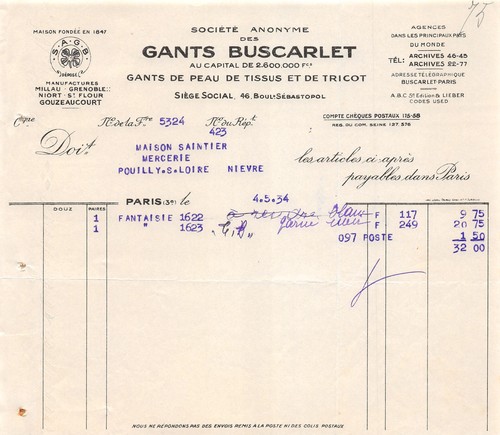 MAISON FONDÉE EN 1847
S.A.G.B
DÉPOSÉ
MANUFACTURES
MILLAU - GRENOBLE
NIORT - ST FLOUR
GOUZEAUCOURT
SOCIÉTÉ ANONYME
DES
GANTS BUSCARLET
AU CAPITAL DE 2.600.000 Fcs
GANTS DE PEAU DE TISSUS ET DE TRICOT
SIÈGE SOCIAL, 46, BOULd SÉBASTOPOL
AGENCES
DANS LES PRINCIPAUX PAYS
DU MONDE
TÉL: ARCHIVES 46-45
ARCHIVES 22-77
ADRESSE TÉLÉGRAPHIQUE
BUSCARLET-PARIS
A.B.C. 5th Edition & LIEBER
CODES USED
COMPTE CHÈQUES POSTAUX 115-58
REG. DU COM. SEINE 127.576
No de la Fre 5324
No du Rept
423
Doit
MAISON SAINTIER
MERCERIE
POUILLY.S.LOIRE NIEVRE
les articles ci-après
payables dans Paris
PARIS (3e) le 4.5.34
DOUZ PAIRES
1 FANTAISIE 1622 F 117 9 75
1 " 1623 F 249 20 75
097 POSTE 1 50
32 00
NOUS NE RÉPONDONS PAS DES ENVOIS REMIS A LA POSTE NI DES COLIS POSTAUX